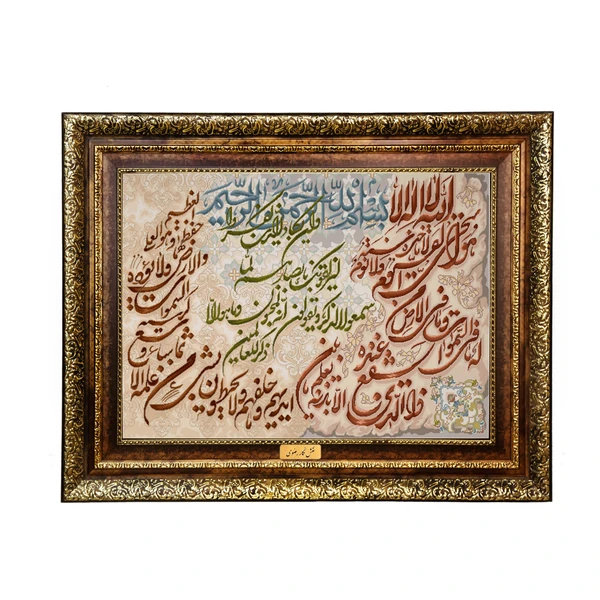 بسم الله الرحمن الرحیم
الله لا اله الا
هو الحی القیوم لا تأخذه سنة
ولا نوم
له ما فی السموات وما فی الارض من
ذا الذی یشفع عنده
الا باذنه یعلم ما بین
ایدیهم وما خلفهم ولا یحیطون بشیء من
علمه الا
بما شاء وسع
کرسیه
السموات
والارض ولا یؤده
حفظهما وهو العلی
العظیم
وان یکاد الذین کفروا
لیزلقونک بابصارهم لما
سمعوا الذکر ویقولون انه لمجنون وما هو الا
ذکر للعالمین
نقش نگار رضوی